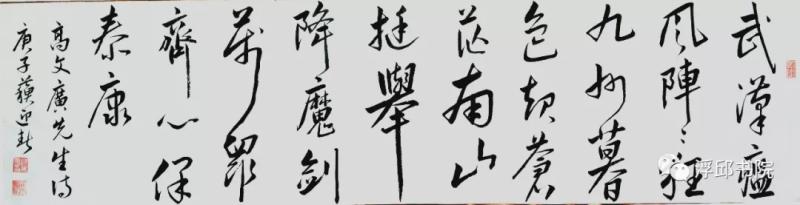 武漢瘟
风陣々狂
九州暮
色起蒼
茫南山
挺舉
降魔劍
萬眾
齊心保
泰康
高文廣先生诗
庚子迎
浮邱书院